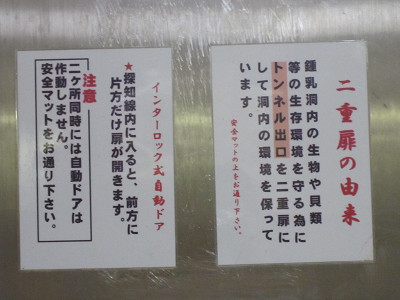 二重扉の由来
鍾乳洞内の生物や貝類
等の生存環境を守る為に
トンネル出口を二重扉に
して洞内の環境を保って
います。
安全マットの上をお通り下さい。
インターロック式自動ドア
★探知線内に入ると、前方に
片方だけ扉が開きます。
注意
二ヶ所同時には自動ドアは
作動しません。
安全マットをお通り下さい。